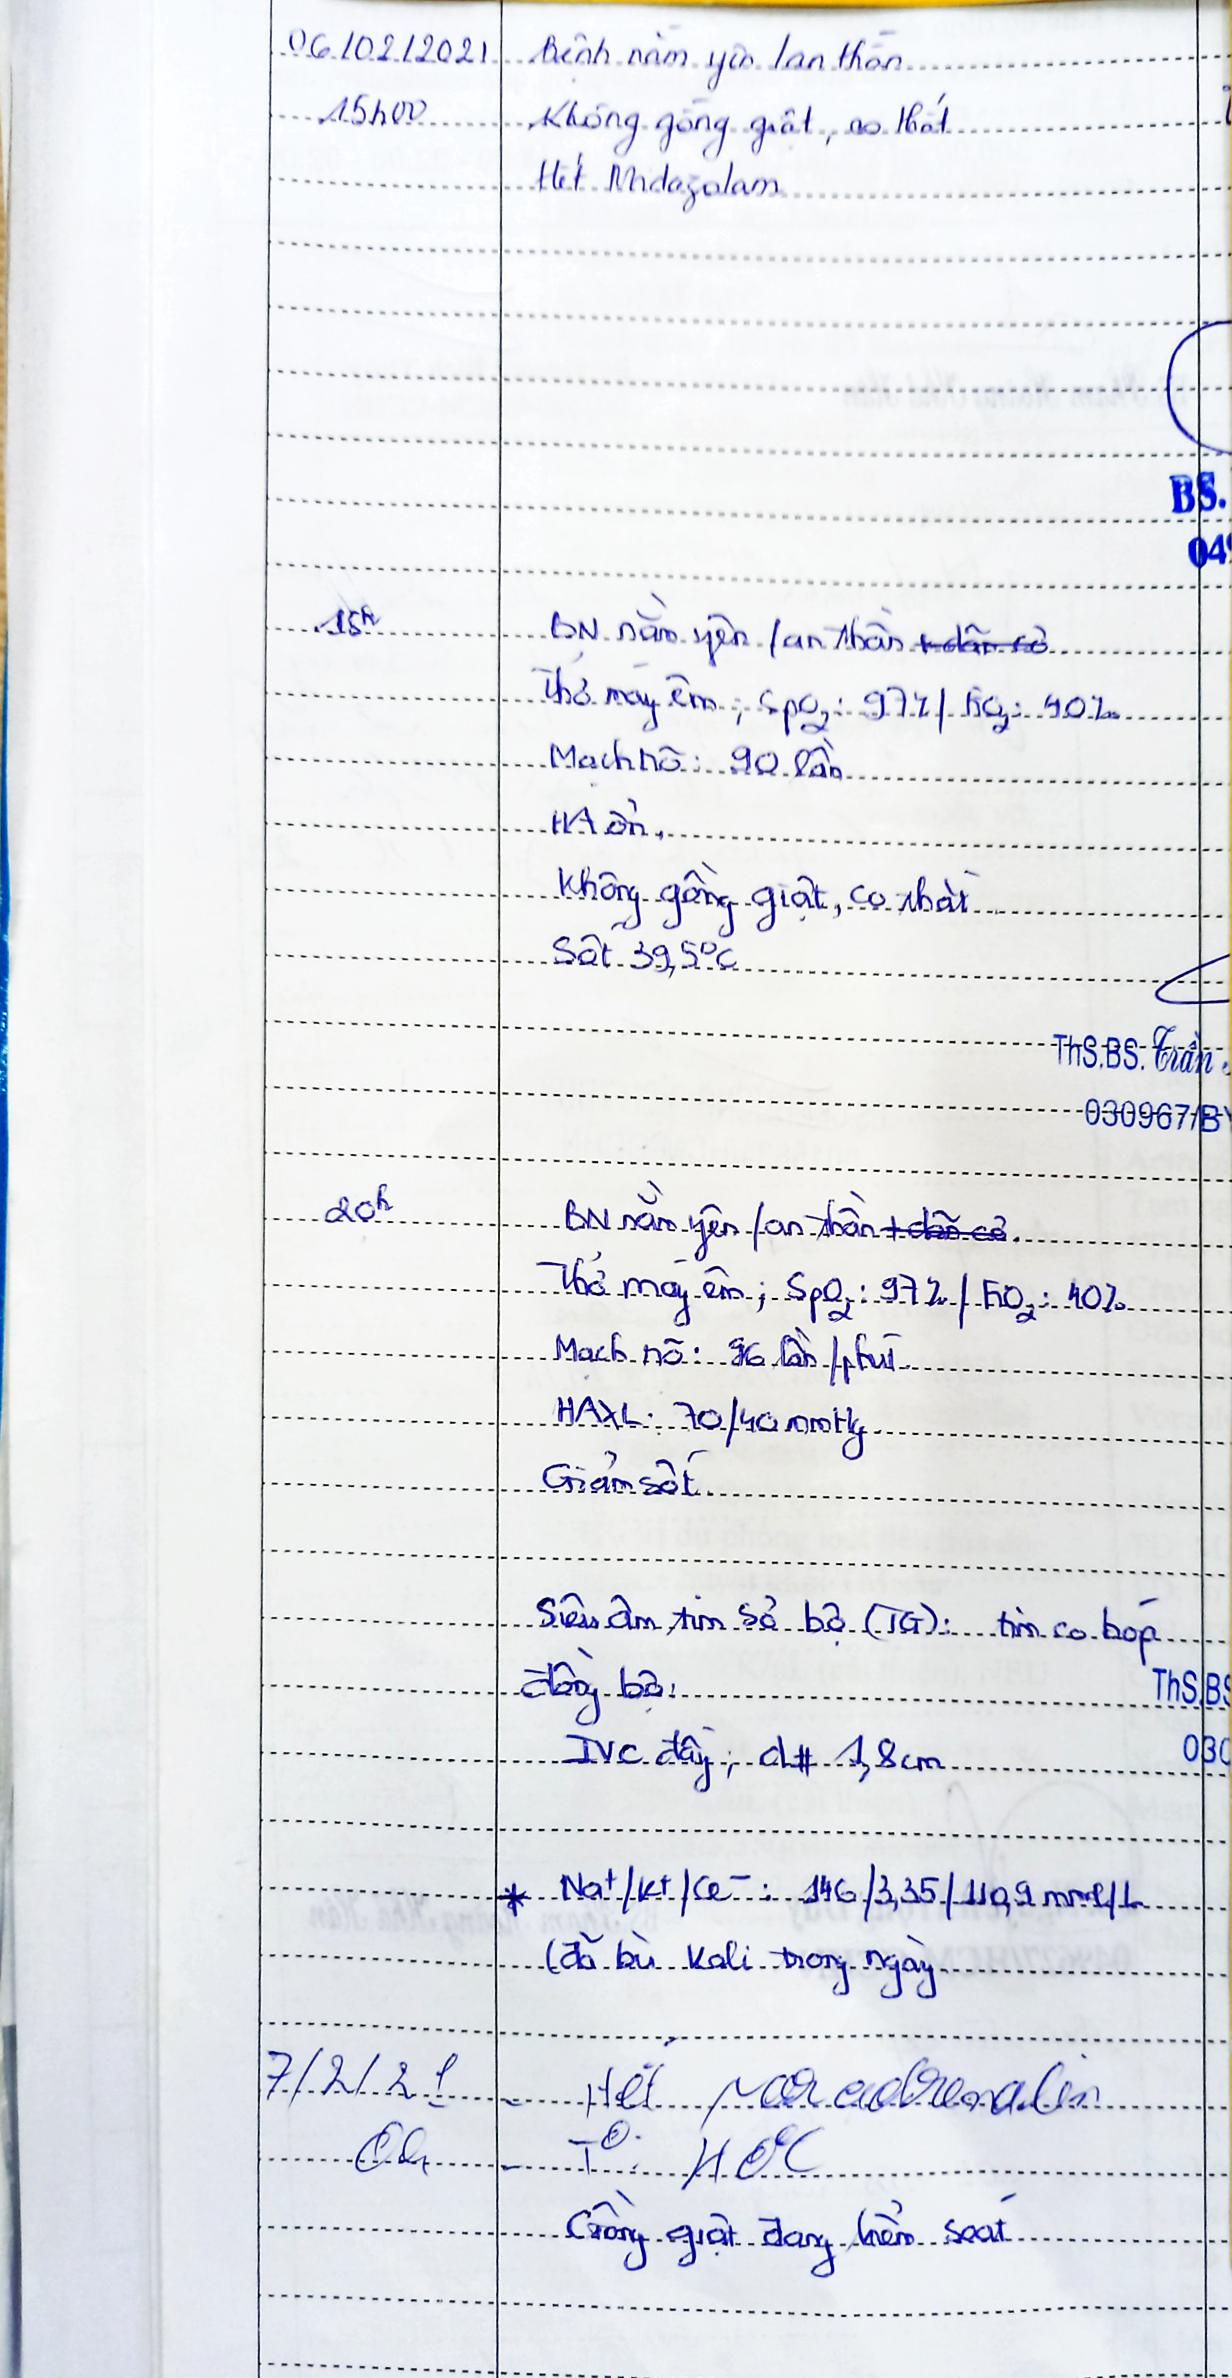 06/02/2021 Bệnh nằm yên / an thần
15h00 Không gồng giật, co thắt
Hết Midazolam
BS.
04
15h BN nằm yên / an thần + dãn cơ
Thở máy êm ; SpO2: 97% / FiO2: 40%
Mạch rõ: 90 lần
HA ổn.
Không gồng giật, co thắt
Sốt 39,5°C
ThS.BS. Trần
030967/BY
20h BN nằm yên / an thần + dãn cơ.
Thở máy êm ; SpO2: 97% / FiO2: 40%
Mạch rõ: 96 lần/phút
HAXL: 70/40 mmHg
Giảm sốt
Siêu âm tim sơ bộ (TG): tim co bóp
đồng bộ. ThS.BS
IVC đầy, d# 1,8cm 030
* Na+/K+/Cl-: 146/3,35/110,9 mmol/L
(đã bù Kali trong ngày
7/2/21 - Hết noradrenalin
- T°:
Gồng giật đang kiểm soát